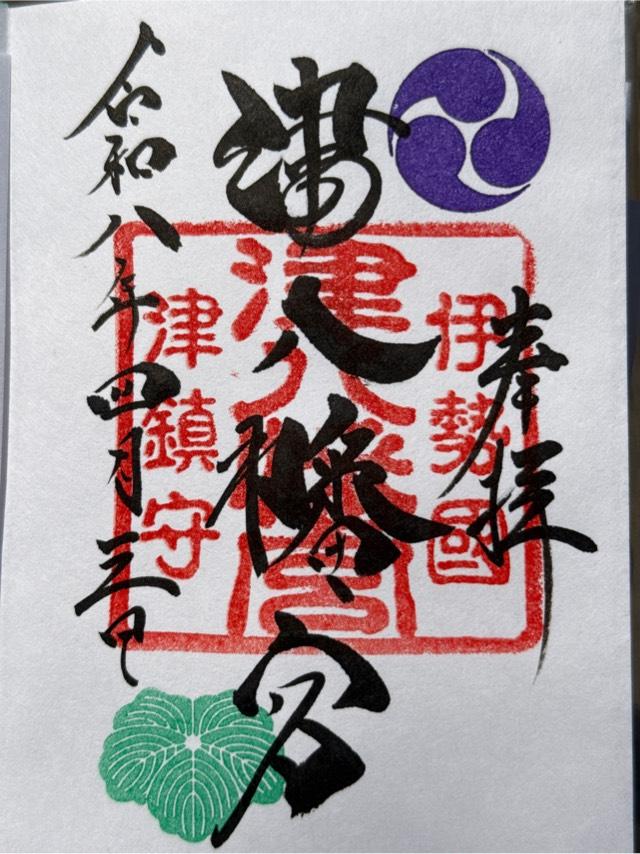 奉拝
伊勢國
津八幡宮
津八幡宮
津鎮守
令和八年四月三日